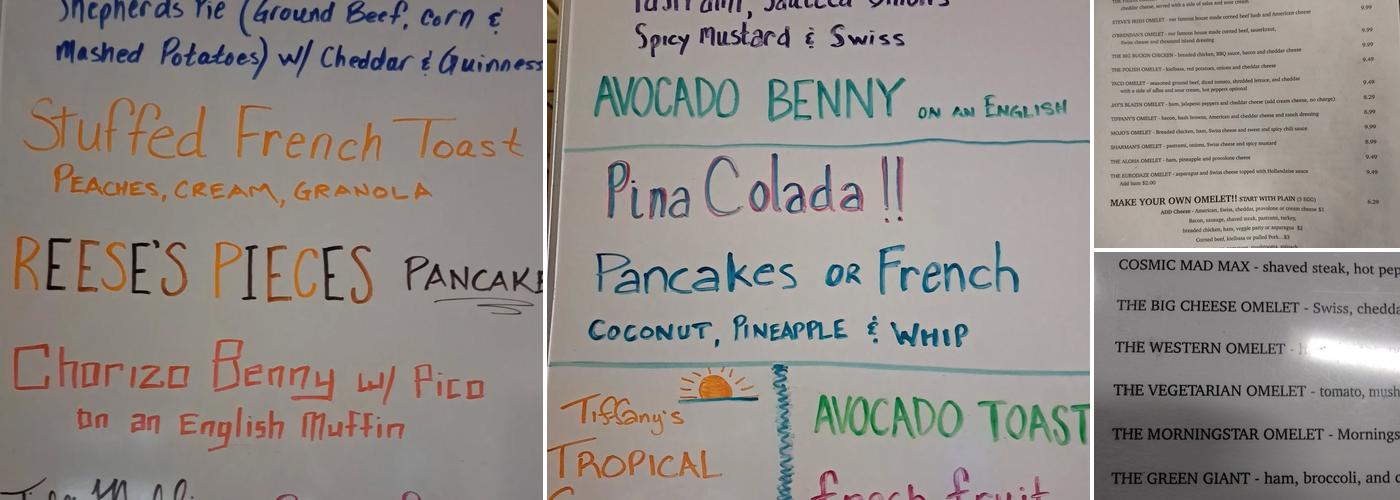 Shepherds Pie (Ground Beef, Corn &
Mashed Potatoes) w/ Cheddar & Guinness
Stuffed French Toast
PEACHES, CREAM, GRANOLA
REESE'S PIECES PANCAKE
Chorizo Benny w/ Pico
on an English Muffin
Spicy Mustard & Swiss
AVOCADO BENNY ON AN ENGLISH
Pina Colada!!
Pancakes OR French
COCONUT, PINEAPPLE & WHIP
Tiffany's
TROPICAL
AVOCADO TOAST
fresh fruit
cheddar cheese, served with a side of salsa and sour cream
STEVE'S IRISH OMELET - our famous house made corned beef hash and American cheese 9.99
O'BRENDAN'S OMELET - our famous house made corned beef, sauerkraut, 9.99
Swiss cheese and thousand island dressing
THE BIG BUCKIN CHICKEN - breaded chicken, BBQ sauce, bacon and cheddar cheese 9.99
THE POLISH OMELET - kielbasa, red potatoes, onions and cheddar cheese 9.49
TACO OMELET - seasoned ground beef, diced tomato, shredded lettuce, and cheddar 9.49
with a side of salsa and sour cream, hot peppers optional
JAY'S BLAZIN OMELET - ham, jalapeno peppers and cheddar cheese (add cream cheese, no charge) 8.29
TIFFANY'S OMELET - bacon, hash browns, American and cheddar cheese and ranch dressing 8.99
MOJO'S OMELET - Breaded chicken, ham, Swiss cheese and sweet and spicy chili sauce 9.99
SHARMAN'S OMELET - pastrami, onions, Swiss cheese and spicy mustard 8.99
THE ALOHA OMELET - ham, pineapple and provolone cheese 9.49
THE EURODAZE OMELET - asparagus and Swiss cheese topped with Hollandaise sauce 9.49
Add ham $2.00
MAKE YOUR OWN OMELET!! START WITH PLAIN (3 EGG) 6.29
ADD Cheese - American, Swiss, cheddar, provolone or cream cheese $1
Bacon, sausage, shaved steak, pastrami, turkey,
breaded chicken, ham, veggie patty or asparagus $2
Corned beef, kielbasa or pulled Pork...$3
COSMIC MAD MAX - shaved steak, hot pep
THE BIG CHEESE OMELET - Swiss, chedda
THE WESTERN OMELET -
THE VEGETARIAN OMELET - tomato, mush
THE MORNINGSTAR OMELET - Mornings
THE GREEN GIANT - ham, broccoli, and